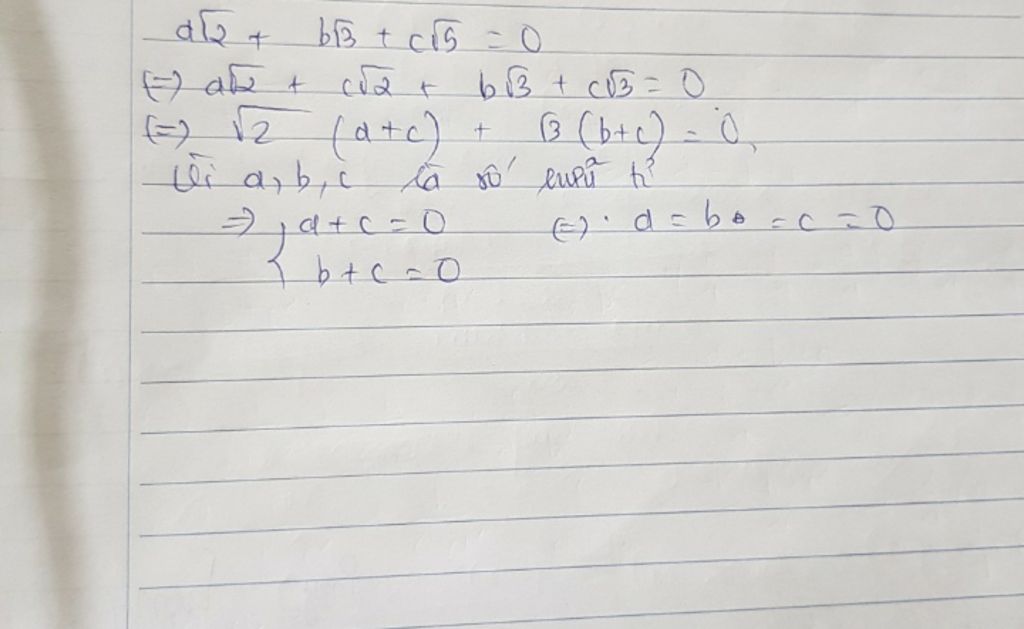 a√2 + b√3 + c√5 = 0
(=) a√2 + c√2 + b√3 + c√3 = 0
(=) √2 (a+c) + √3 (b+c) = 0,
Vì a, b, c là số hữu tỉ
=> { a+c = 0 (=) a = b = c = 0
b+c = 0